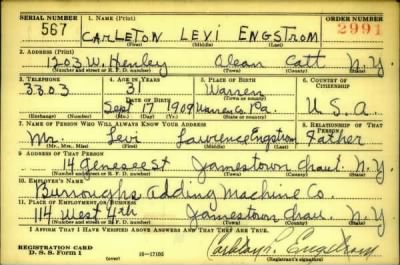 SERIAL NUMBER 1. NAME (Print) ORDER NUMBER
567 CARLETON LEVI ENGSTROM 2991
(First) (Middle) (Last)
2. ADDRESS (Print)
1203 W. Henley Olean Catt N.Y.
(Number and street or R. F. D. number) (Town) (County) (State)
3. TELEPHONE 4. AGE IN YEARS 5. PLACE OF BIRTH 6. COUNTRY OF CITIZENSHIP
3303 31 Warren
DATE OF BIRTH (Town or county)
Sept 17 1909 Warren Co. Pa. U.S.A.
(Exchange) (Number) (Mo.) (Day) (Yr.) (State or country)
7. NAME OF PERSON WHO WILL ALWAYS KNOW YOUR ADDRESS 8. RELATIONSHIP OF THAT PERSON
Mr. Levi Lawrence Engstrom Father
(Mr., Mrs., Miss) (First) (Middle) (Last)
9. ADDRESS OF THAT PERSON
14 Genesee St Jamestown Chaut. N.Y.
(Number and street or R. F. D. number) (Town) (County) (State)
10. EMPLOYER'S NAME
Burroughs Adding Machine Co.
11. PLACE OF EMPLOYMENT OR BUSINESS
114 West 4th Jamestown Chau. N.Y.
(Number and street or R. F. D. number) (Town) (County) (State)
I AFFIRM THAT I HAVE VERIFIED ABOVE ANSWERS AND THAT THEY ARE TRUE.
REGISTRATION CARD
D. S. S. Form 1 (over) 16—17105 Engstrom
(Registrant's signature)